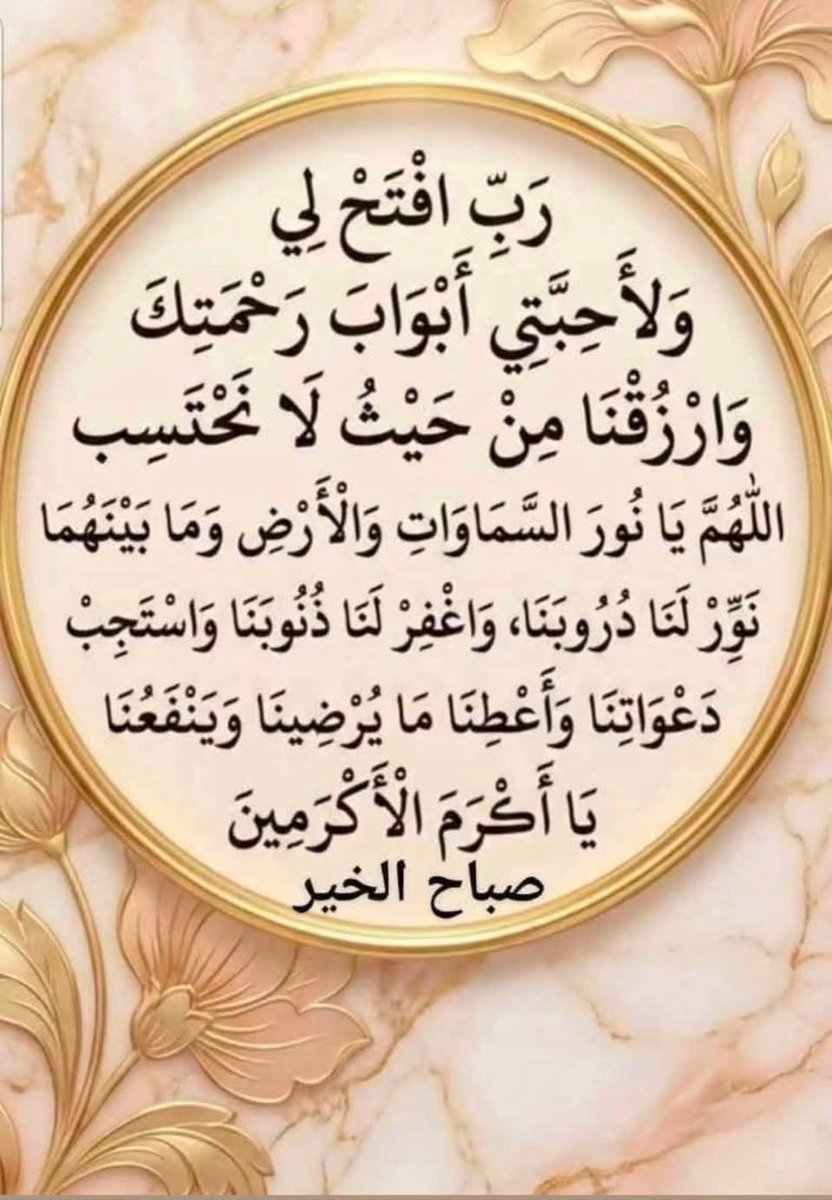 رَبِّ افْتَحْ لِي
وَلأَحِبَّتِي أَبْوَابَ رَحْمَتِكَ
وَارْزُقْنَا مِنْ حَيْثُ لَا نَحْتَسِب
اللَّهُمَّ يَا نُورَ السَّمَاوَاتِ وَالْأَرْضِ وَمَا بَيْنَهُمَا
نَوِّرْ لَنَا دُرُوبَنَا، وَاغْفِرْ لَنَا ذُنُوبَنَا وَاسْتَجِبْ
دَعْوَاتِنَا وَأَعْطِنَا مَا يُرْضِينَا وَيَنْفَعُنَا
يَا أَكْرَمَ الْأَكْرَمِينَ
صباح الخير